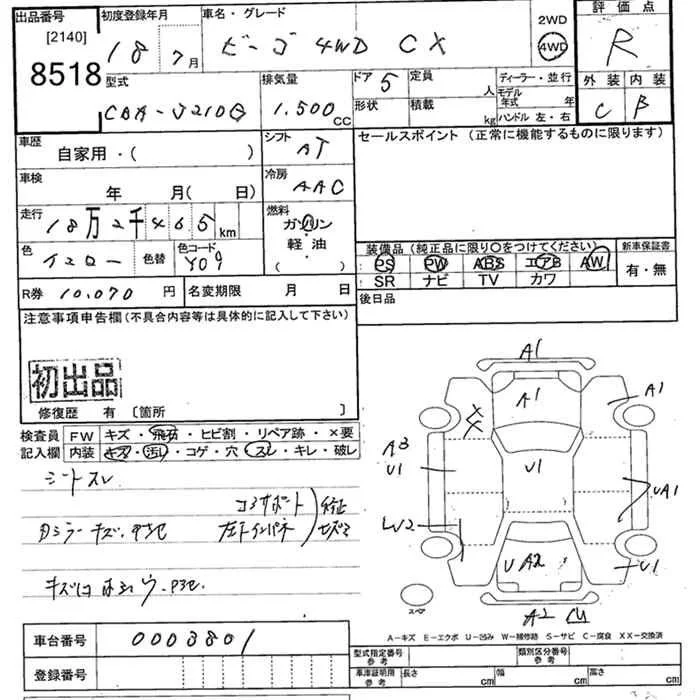 出品番号
[2140]
8518
初度登録年月
18 7月
車名・グレード
ビーゴ 4WD CX
2WD
4WD
評価点
R
外装 内装
C B
型式
CBA-J210G
排気量
1.500 CC
ドア 5
形状
定員 人
積載 kg
ディーラー・並行
モデル年式 年
ハンドル 左・右
車歴
自家用・( )
シフト
AT
セールスポイント (正常に機能するものに限ります)
車検
年 月( 日)
冷房
AAC
走行
18万2千465km
燃料
ガソリン
軽油
( )
色
イエロー
色替
色コード
Y09
装備品 (純正品に限り○をつけてください)
新車保証書
PS PW ABS エアB AW
有・無
SR ナビ TV カワ
R券 10,070 円
名変期限 月 日
後日品
注意事項申告欄(不具合内容等は具体的に記入して下さい)
初出品
修復歴 有 〔箇所 〕
検査員
記入欄
FW キズ・飛石・ヒビ割・リペア跡・×要
内装 キズ・汚れ・コゲ・穴・スレ・キレ・破レ
シートスレ
コアサポート
左右インパネ
A1
A1
A1
A3
U1
U1
UA1
W2
U A2
U1
A2
スペア
A-キズ E-エクボ U-凹み W-補修跡 S-サビ C-腐食 XX-交換済
車台番号
0003801
登録番号
型式指定番号
参考
類別区分番号
参考
車庫証明用
参考
長さ cm
幅 cm
高さ cm